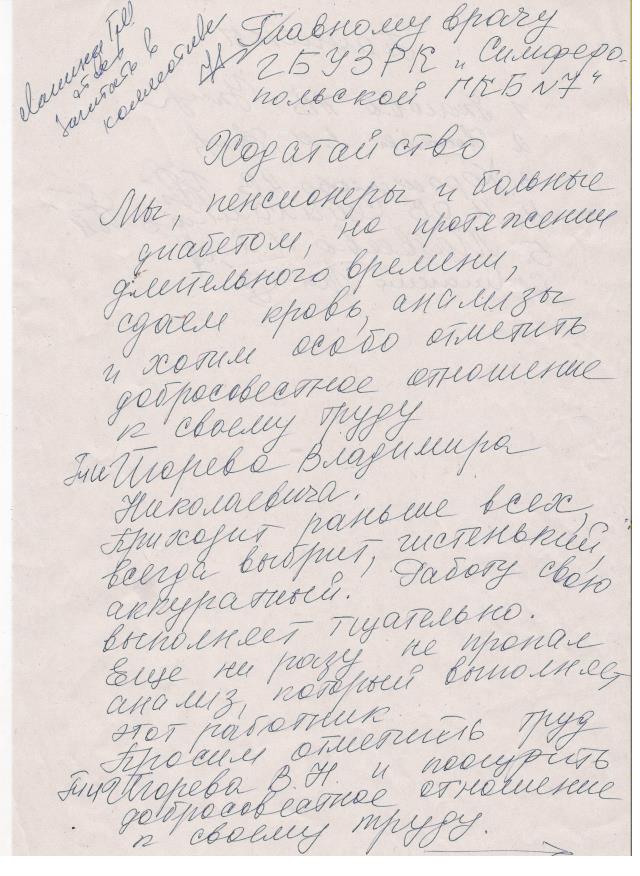 зачитать в
коллективе
Главному врачу
ГБУЗРК „Симферо-
польской ГКБ №7"
Ходатайство
Мы, пенсионеры и больные
диабетом, на протяжении
длительного времени,
сдаем кровь, анализы
и хотим особо отметить
добросовестное отношение
к своему труду
Игорева Владимира
Николаевича.
Приходит раньше всех,
всегда выбрит, чистенький,
аккуратный. Работу свою
выполняет тщательно.
Еще ни разу не пропал
анализ, который выполняет
этот работник
Просим отметить труд
Игорева В.Н. и поощрить
добросовестное отношение
к своему труду.